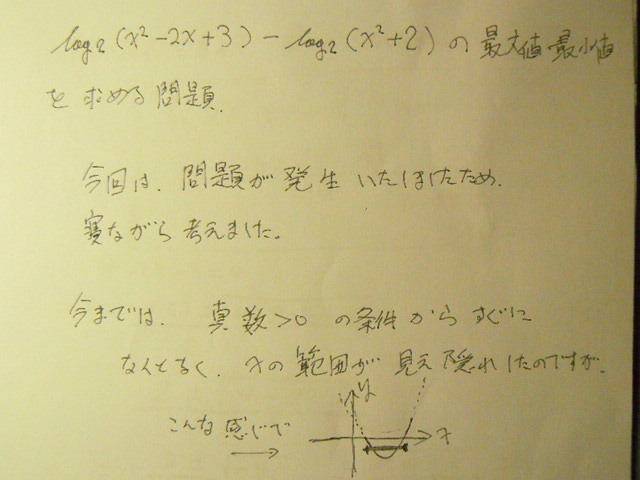 log₂(x²-2x+3) - log₂(x²+2) の最大値・最小値
を求める問題.
今回は、問題が発生いたしましたため、
寝ながら考えました。
今までは、真数>0 の条件からすぐに
なんとなく、xの範囲が見え隠れしたのですが、
y
こんな感じで
x